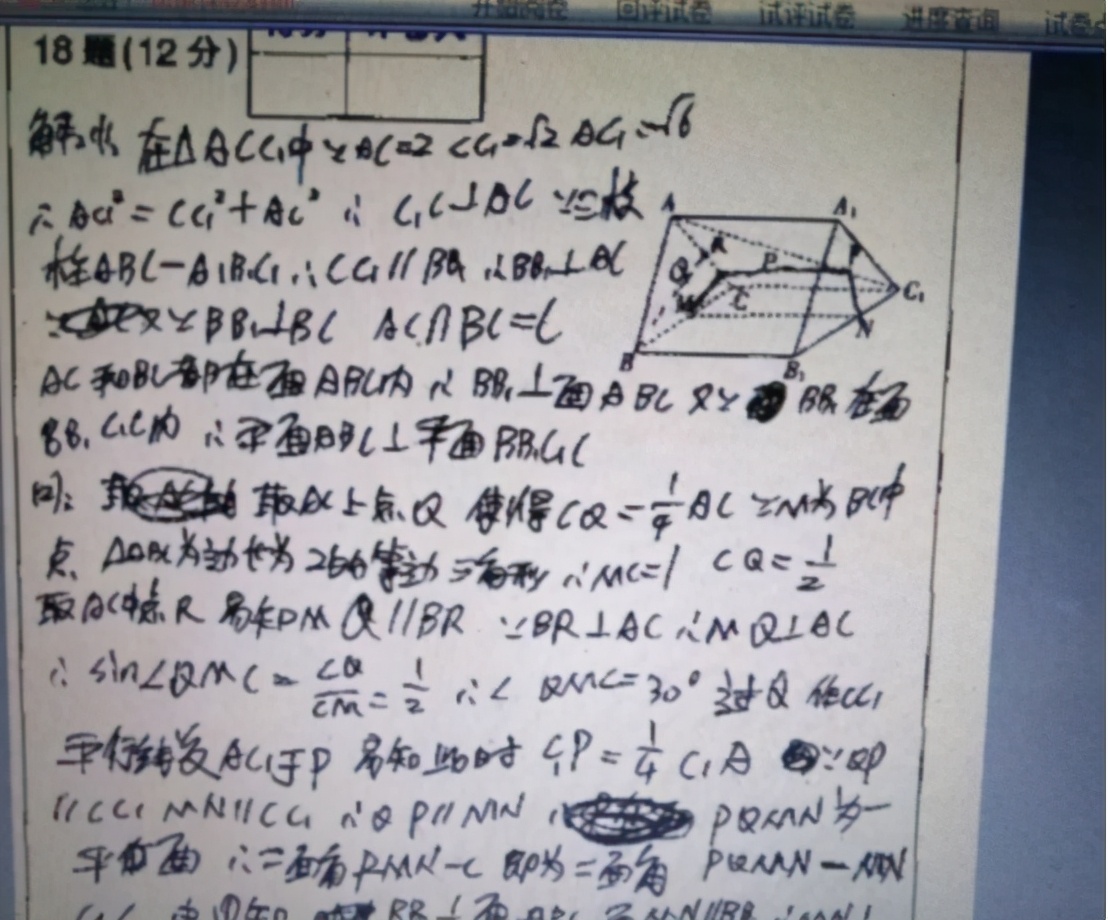 开始阅卷 回评试卷 试评试卷 进度查询 试卷
18题(12分)
解: 在△ACC₁中∵AC=2 CC₁=√2 AC₁=√6
∴AC₁²=CC₁²+AC² ∴ C₁C⊥AC ∵三棱
柱ABC-A₁B₁C₁∴CC₁//BB₁∴BB₁⊥AC
又∵BB₁⊥BC AC∩BC=C
AC和BC都在面ABC内∴BB₁⊥面ABC 又∵BB₁在面
BB₁C₁C内 ∴平面ABC⊥平面BB₁C₁C
取AC上点Q 使得CQ=1/4AC ∵M为BC中
点 △ABC为边长为2的等边三角形∴MC=1 CQ=1/2
取AC中点R 易知MQ//BR ∵BR⊥AC∴MQ⊥AC
∴sin∠QMC=CQ/CM=1/2 ∴∠QMC=30° 过Q作CC₁
平行线交AC₁于P 易知此时C₁P=1/4C₁A ∵QP
//CC₁ MN//CC₁∴QP//MN PQMN为一
平面 ∴二面角PMN-C即为二面角PQMN-MN
A A₁ R P Q C C₁ M N B B₁